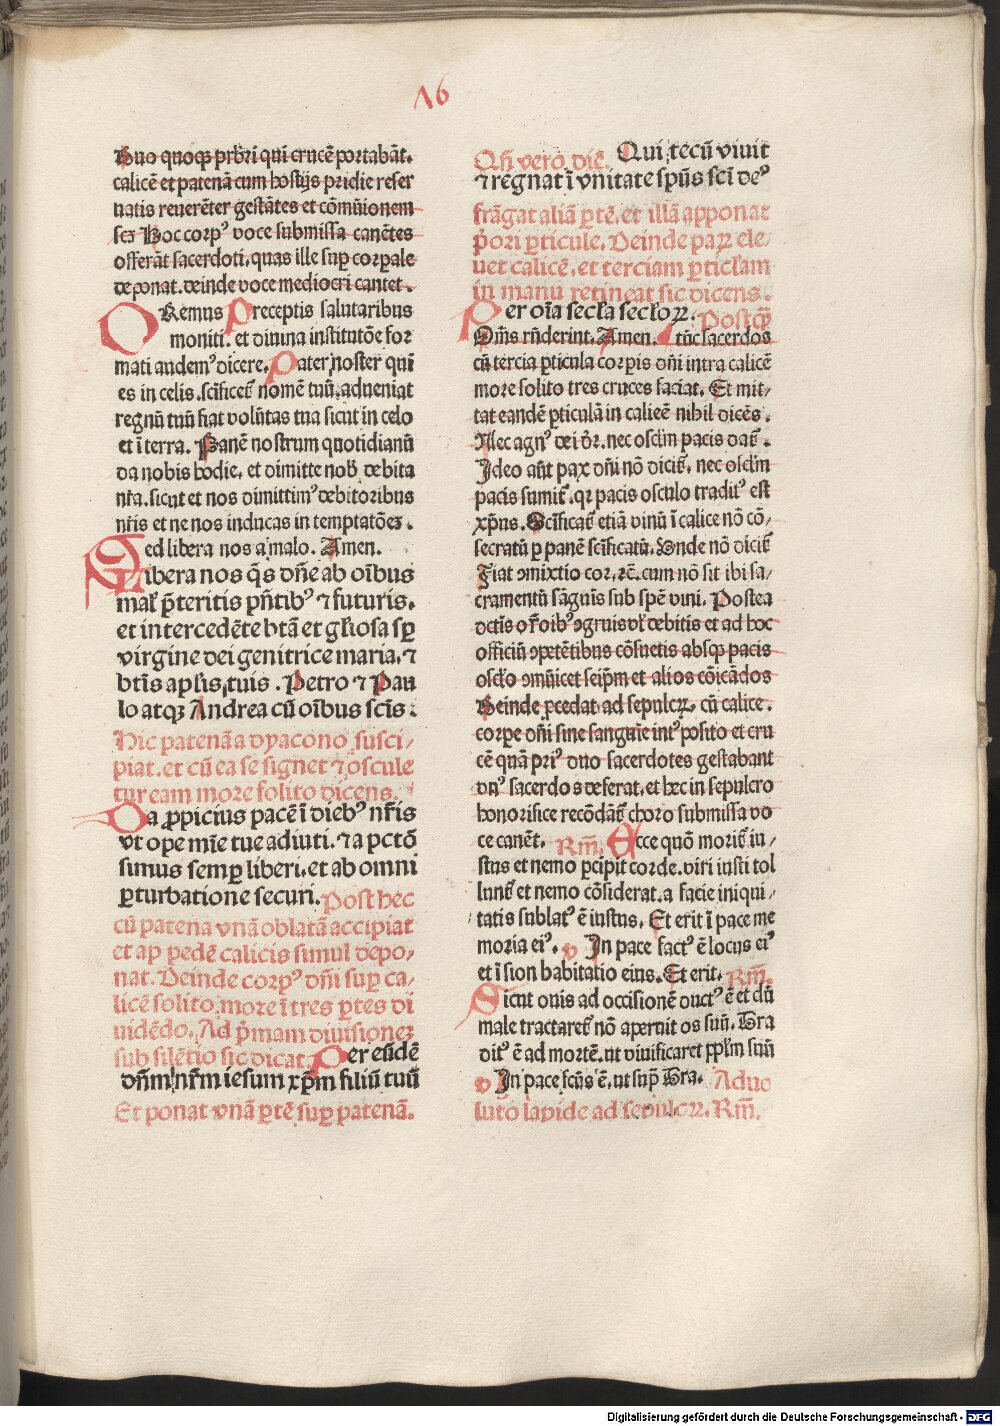 16
Duo quoqꝫ prb̄ri qui crucē portabāt.
calicē et patenā cum hostijs pridie reser
uatis reuerēter gestātes et cōmūionem
Hoc corpꝰ voce submissa canētes
offerāt sacerdoti, quas ille suꝑ corꝑale
deponat. deinde voce mediocri cantet.
ORemus Preceptis salutaribus
moniti. et diuina institutōe for
mati audemꝰ dicere. Pater noster qui
es in celis. sc̄ificet᷑ nomē tuū. adueniat
regnū tuū fiat volūtas tua sicut in celo
et ī terra. Panē nostrum quotidianū
da nobis hodie. et dimitte nob̄ debita
nr̄a. sicut et nos dimittimꝰ debitoribus
nr̄is et ne nos inducas in temptatōeꝫ.
Sed libera nos a malo. Amen.
Libera nos q̄s dn̄e ab oībus
mal̓ p̄teritis pn̄tibꝰ ⁊ futuris.
et intercedēte btā et gl̓iosa sꝑ
virgine dei genitrice maria. ⁊
btīs apl̓is tuis. Petro ⁊ Pau
lo atqꝫ Andrea cū oībus scīs:
Hic patenā a dyacono susci/
piat. et cū ea se signet ⁊ oscule
tur eam more solito dicens.
Da ꝓpicius pacē ī diebꝰ nr̄is
vt ope mīe tue adiuti. ⁊ a pctō
simus semꝑ liberi. et ab omni
ꝑturbatione securi. Post hec
cū patena vnā oblatā accipiat
et ap pedē calicis simul depo/
nat. Deinde corpꝰ dn̄i suꝑ ca/
licē solito more ī tres ꝑtes di
uidēdo. Ad p̄mam diuisioneꝫ
sub silētio sic dicat. Per eūdē
dn̄m nr̄m iesum xp̄m filiū tuū
Et ponat vnā ꝑtē suꝑ patenā.
Qn̄ vero dic̄. Qui tecū viuit
⁊ regnat ī vnitate spūs scī deꝰ
frāgat aliā ꝑtē. et illā apponat
p̓ori ꝑticule. Deinde paꝝ ele/
uet calicē. et terciam ꝑticl̓am
in manu retineat sic dicens.
Per oīa secl̓a secl̓oꝝ. Postqꝫ
Om̄s rn̄derint. Amen. tūc sacerdos
cū tercia ꝑticula corꝑis dn̄i intra calicē
more solito tres cruces faciat. Et mit/
tat eandē ꝑticulā in calicē nihil dicēs.
Nec agnꝰ dei dr̄. nec oscl̓m pacis dat᷑.
Ideo aūt pax dn̄i nō dicit᷑. nec oscl̓m
pacis sumit᷑. qꝛ pacis osculo traditꝰ est
xp̄us. Sc̄ificat᷑ etiā vinū ī calice nō cō/
secratū ꝑ panē sc̄ificatū. Unde nō dicit᷑
Fiat ↄmixtio cor. ⁊c̄. cum nō sit ibi sa/
cramentū sāguīs sub spē vini. Postea
dctīs or̄oībꝰ ↄgruis vl̓ debitis et ad hoc
officiū ↄpetētibus cōsuetis absqꝫ pacis
oscl̓o ↄmūicet seip̄m et alios cōicādos
Deinde ꝓcedat ad sepulcꝝ. cū calice.
corꝑe dn̄i sine sanguīe intꝰ posito et cru
cē quā priꝰ duo sacerdotes gestabant
vnꝰ sacerdos deferat. et hec in sepulcro
honorifice recōdat᷑ choro submissa vo
ce canēt. Rm̄. Ecce quō morit᷑ iu/
stus et nemo ꝑcipit corde. viri iusti tol
lunt᷑ et nemo cōsiderat. a facie iniqui/
tatis sublatꝰ ē iustus. Et erit ī pace me
moria eiꝰ. v In pace factꝰ ē locus eiꝰ
et ī sion habitatio eius. Et erit. Rm̄.
Sicut ouis ad occisionē ductꝰ ē et dū
male tractaret᷑ nō aperuit os suū. Tra
ditꝰ ē ad mortē. ut viuificaret ppl̓m suū
v In pace fcūs ē. ut suꝑ Tra. Aduo
luto lapide ad sepulcꝝ. Rm̄.
Digitalisierung gefördert durch die Deutsche Forschungsgemeinschaft - DFG